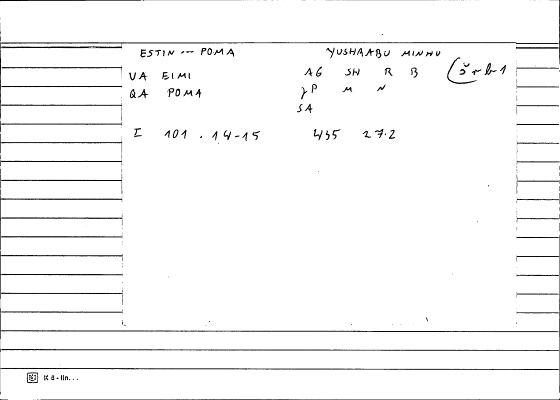 ESTIN --- POMA YUSHAABU MINHU
VA EIMI AG SH R B (š r b 1
QA POMA γP M N
SA
I 101 . 14-15 435 27.2
K 8 - lin...